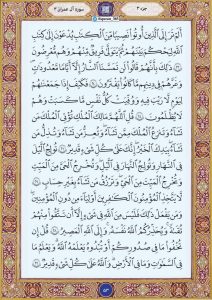 جزء ۳
سوره آل عمران ۳
أَلَمْ تَرَ إِلَى ٱلَّذِينَ أُوتُوا۟ نَصِيبًا مِّنَ ٱلْكِتَٰبِ يُدْعَوْنَ إِلَىٰ كِتَٰبِ
ٱللَّهِ لِيَحْكُمَ بَيْنَهُمْ ثُمَّ يَتَوَلَّىٰ فَرِيقٌ مِّنْهُمْ وَهُم مُّعْرِضُونَ ٢٣
ذَٰلِكَ بِأَنَّهُمْ قَالُوا۟ لَن تَمَسَّنَا ٱلنَّارُ إِلَّآ أَيَّامًا مَّعْدُودَٰتٍ
وَغَرَّهُمْ فِى دِينِهِم مَّا كَانُوا۟ يَفْتَرُونَ ٢٤ فَكَيْفَ إِذَا جَمَعْنَٰهُمْ
لِيَوْمٍ لَّا رَيْبَ فِيهِ وَوُفِّيَتْ كُلُّ نَفْسٍ مَّا كَسَبَتْ وَهُمْ
لَا يُظْلَمُونَ ٢٥ قُلِ ٱللَّهُمَّ مَٰلِكَ ٱلْمُلْكِ تُؤْتِى ٱلْمُلْكَ مَن
تَشَآءُ وَتَنزِعُ ٱلْمُلْكَ مِمَّن تَشَآءُ وَتُعِزُّ مَن تَشَآءُ وَتُذِلُّ مَن
تَشَآءُ بِيَدِكَ ٱلْخَيْرُ إِنَّكَ عَلَىٰ كُلِّ شَىْءٍ قَدِيرٌ ٢٦ تُولِجُ ٱلَّيْلَ
فِى ٱلنَّهَارِ وَتُولِجُ ٱلنَّهَارَ فِى ٱلَّيْلِ وَتُخْرِجُ ٱلْحَىَّ مِنَ ٱلْمَيِّتِ
وَتُخْرِجُ ٱلْمَيِّتَ مِنَ ٱلْحَىِّ وَتَرْزُقُ مَن تَشَآءُ بِغَيْرِ حِسَابٍ ٢٧
لَّا يَتَّخِذِ ٱلْمُؤْمِنُونَ ٱلْكَٰفِرِينَ أَوْلِيَآءَ مِن دُونِ ٱلْمُؤْمِنِينَ
وَمَن يَفْعَلْ ذَٰلِكَ فَلَيْسَ مِنَ ٱللَّهِ فِى شَىْءٍ إِلَّآ أَن تَتَّقُوا۟ مِنْهُمْ
تُقَىٰةً وَيُحَذِّرُكُمُ ٱللَّهُ نَفْسَهُۥ وَإِلَى ٱللَّهِ ٱلْمَصِيرُ ٢٨ قُلْ إِن
تُخْفُوا۟ مَا فِى صُدُورِكُمْ أَوْ تُبْدُوهُ يَعْلَمْهُ ٱللَّهُ وَيَعْلَمُ مَا
فِى ٱلسَّمَٰوَٰتِ وَمَا فِى ٱلْأَرْضِ وَٱللَّهُ عَلَىٰ كُلِّ شَىْءٍ قَدِيرٌ ٢٩
۵۳